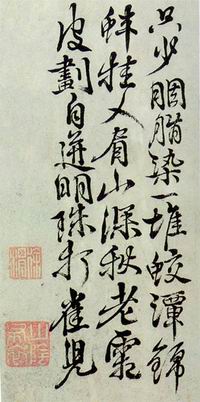 只少胭脂染一堆蛟潭錦
蚌挂人眉山深秋老霜
皮劃自迸明珠打雀兒